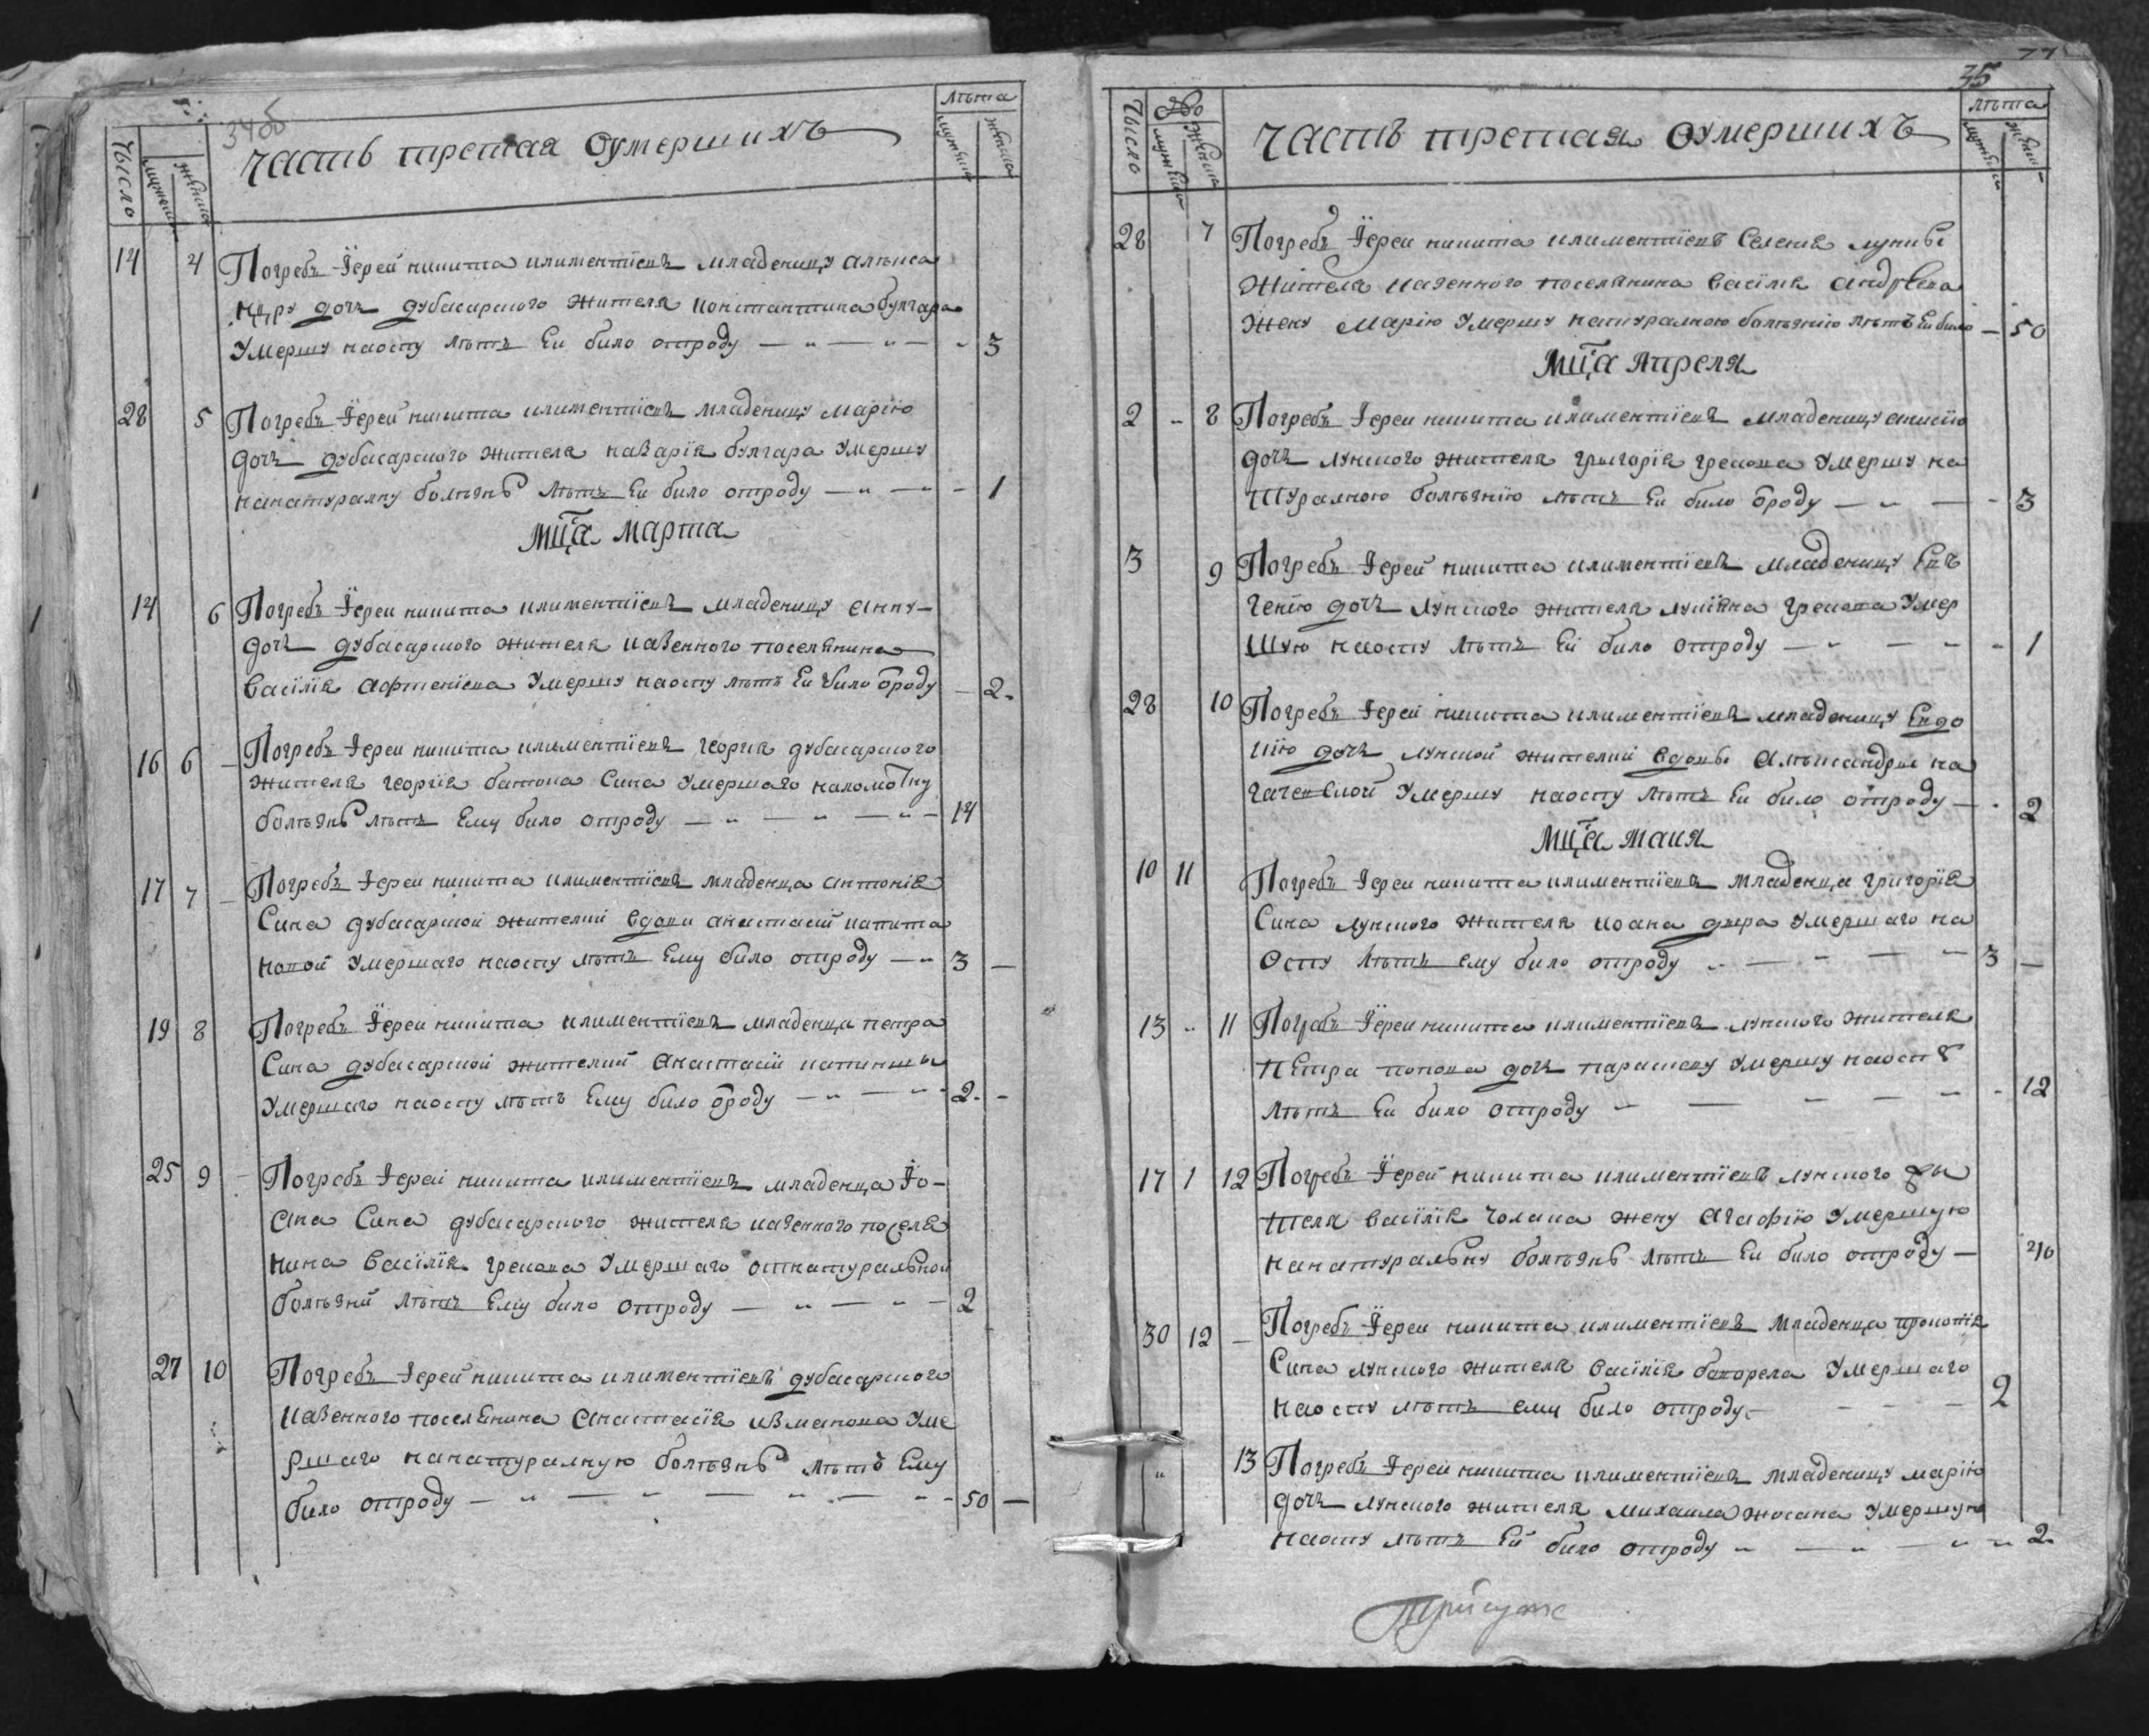 34об
Часть третая оумершихъ
Лѣта
Число
мужеска
женска
14 4 Погребъ Іерей никита климентіевъ младеницу алекса
ндру дочъ дубасарского жителя константина булгара
Умершу наоспу лѣтъ Еи било отроду 3
28 5 Погребъ Іерей никита климентіевъ младеницу марїю
дочъ дубасарского жителя назарія булгара умершу
нанатуралну болѣзнь лѣтъ Еи било отроду 1
мц̃а марта
14 6 Погребъ Іереи никита климентіевъ младеницу анну
дочъ дубасарского жителя казенного поселянина
василїя афтенїева умершу наоспу лѣтъ Еи било ѿроду 2
16 6 Погребъ Іереи никита климентіевъ георгия дубасарского
жителя георгїя батока Сина умершаго наломотну
болѣзнь лѣтъ Ему било отроду 14
17 7 Погребъ Іереи никита климентіевъ младенца антонїя
Сина дубасарской жителкй вдови анастасїи капита
новой умершаго наоспу лѣтъ Ему било отроду 3
19 8 Погребъ Іереи никита климентіевъ младенца петра
Сина дубасарской жителкй анастасїи
умершаго наоспу лѣтъ Ему било ѿроду 2
25 9 Погребъ Іерей никита климентіевъ младенца Іо-
ана Сина дубасарского жителя казенного поселя
нина василїя грекова умершаго отнатуральной
болѣзнй лѣтъ Ему било отроду 2
27 10 Погребъ Іерей никита климентіевъ дубасарского
казенного поселянина анастасїя изманова уме
ршаго нанатуралную болѣзнь лѣтъ Ему
било отроду 50
35
Часть третая оумершихъ
Лѣта
Число
мужеска
женска
28 7 Погребъ Іереи никита климентіевъ селения лунки
жителя казенного поселянина василїя андрѣева
жену марїю умершу натуралною болѣзнїю лѣтъ Еи било 50
Мц̃а Апреля
2 8 Погребъ Іереи никита климентіевъ младеницу анисїю
дочъ лунского жителя григорїя грекова умершу на
туралною болѣзнїю лѣтъ Еи било ѿроду 3
3 9 Погребъ Іерей никита климентіевъ младеницу Евъ
генїю дочъ лунского жителя лукїяна грекова умер
шую наоспу лѣтъ Ей било отроду 1
28 10 Погребъ Іерей никита климентіевъ младеницу Евдо
кїю дочъ лунской жителкй вдовы александры ка
умершу наоспу лѣтъ Еи било отроду 2
Мц̃а Маия
10 11 Погребъ Іереи никита климентіевъ младенца григорїя
Сина лунского жителя иоана умершаго на
оспу лѣтъ ему било отроду 3
13 11 Погребъ Іереи никита климентіевъ лунского жителя
петра попова дочъ параскеву умершу наоспу
лѣтъ Еи било отроду 12
17 1 12 Погребъ Іерей никита климентіевъ лунского жи
теля василїя чолака жену агафїю умершую
нанатуральну болѣзнь лѣтъ Еи било отроду 40
30 12 Погребъ Іереи никита климентіевъ младенца прокопїя
Сина лунского жителя василїя умершаго
наоспу лѣтъ ему било отроду 2
13 Погребъ Іерей никита климентіевъ младеницу марїю
дочъ лунского жителя михаила жосана умершую
наоспу лѣтъ Ей било отроду 2